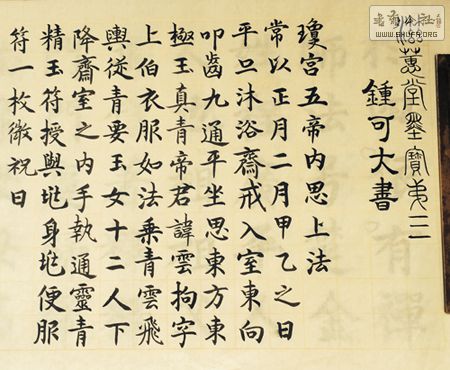 滋蕙堂墨寶弟三
鍾可大書
瓊宮五帝內思上法
常以正月二月甲乙之日
平旦沐浴齋戒入室東向
叩齒九通平坐思東方東
極玉真青帝君諱雲拘字
上伯衣服如法乘青雲飛
輿從青要玉女十二人下
降齋室之內手執通靈青
精玉符授與兆身兆便服
符一枚微祝曰
WWW.SHUFA.ORG